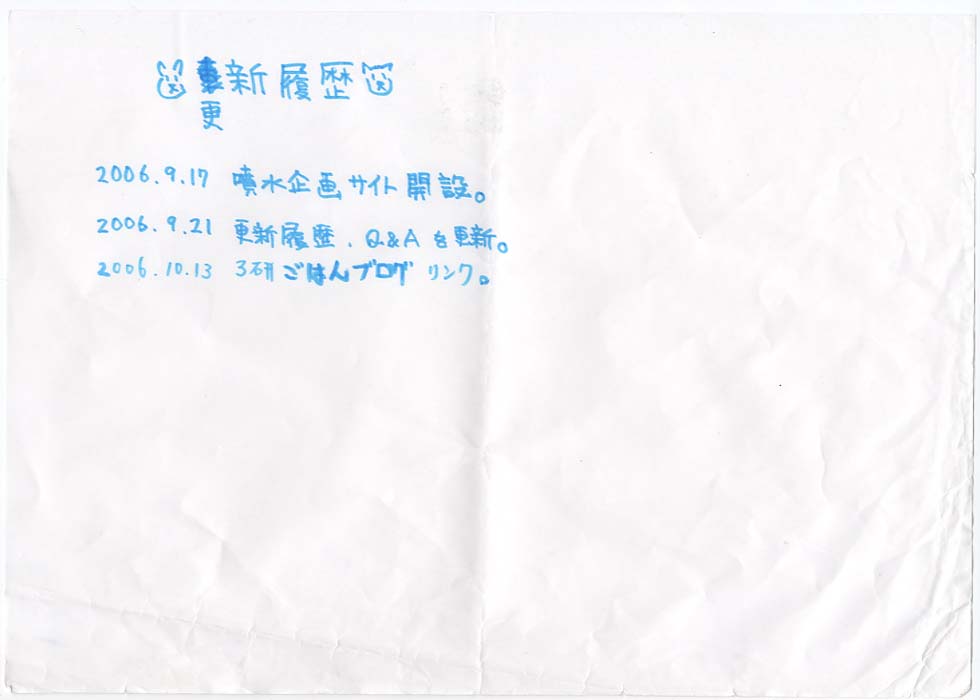 更新履歴
更
2006.9.17 噴水企画サイト開設。
2006.9.21 更新履歴、Q&Aを更新。
2006.10.13 3研ごはんブログリンク。